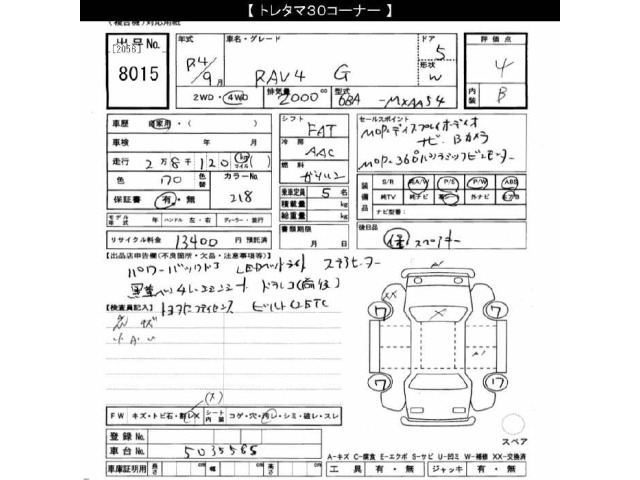 【 トレタマ30コーナー 】
(複合機)対応用紙
出品No. [2056] 8015
年式 R4/9月
車名・グレード RAV4 G
ドア 5
形状 W
評価点 4
内装 B
2WD・4WD 排気量 2000cc 型式 6BA-MXAA54
車歴 自家用・( )
車検 年 月
走行 2万8千120 (km マイル)( )
色 色替 カラーNo. 218
保証書 有・無
シフト FAT
冷房 AAC
燃料 ガソリン
乗車定員 5 名
積載量 kg
総重量 kg
書類期限 月 日
セールスポイント
MOP.ディスプレイオーディオ
ナビ.Bカメラ
装備品 S/R 純A/W P/S P/W ABS
純TV 純ナビ 革シート 外ナビ エアB
ナビ型番:
モデル年式 年 ハンドル 左・右 ディーラー・並行
リサイクル料金 13400 円 預託済
後日品 保 スペアキー
【出品店申告欄(不良箇所・欠品・注意事項等)】
パワーバックドア LEDヘッドライト ステアヒーター
【検査員記入】
ビルトインETC
A'
XX X
7 7
7 17
(X)
FW キズ・トビ石・割レX シート内装 コゲ・穴・汚レ・シミ・破レ・スレ
登録No.
車台No. 5035565
スペア
A-キズ C-腐食 E-エクボ S-サビ U-凹ミ W-補修 XX-交換済
車庫証明用 長さ cm 幅 cm 高さ cm 工具 有・無 ジャッキ 有・無